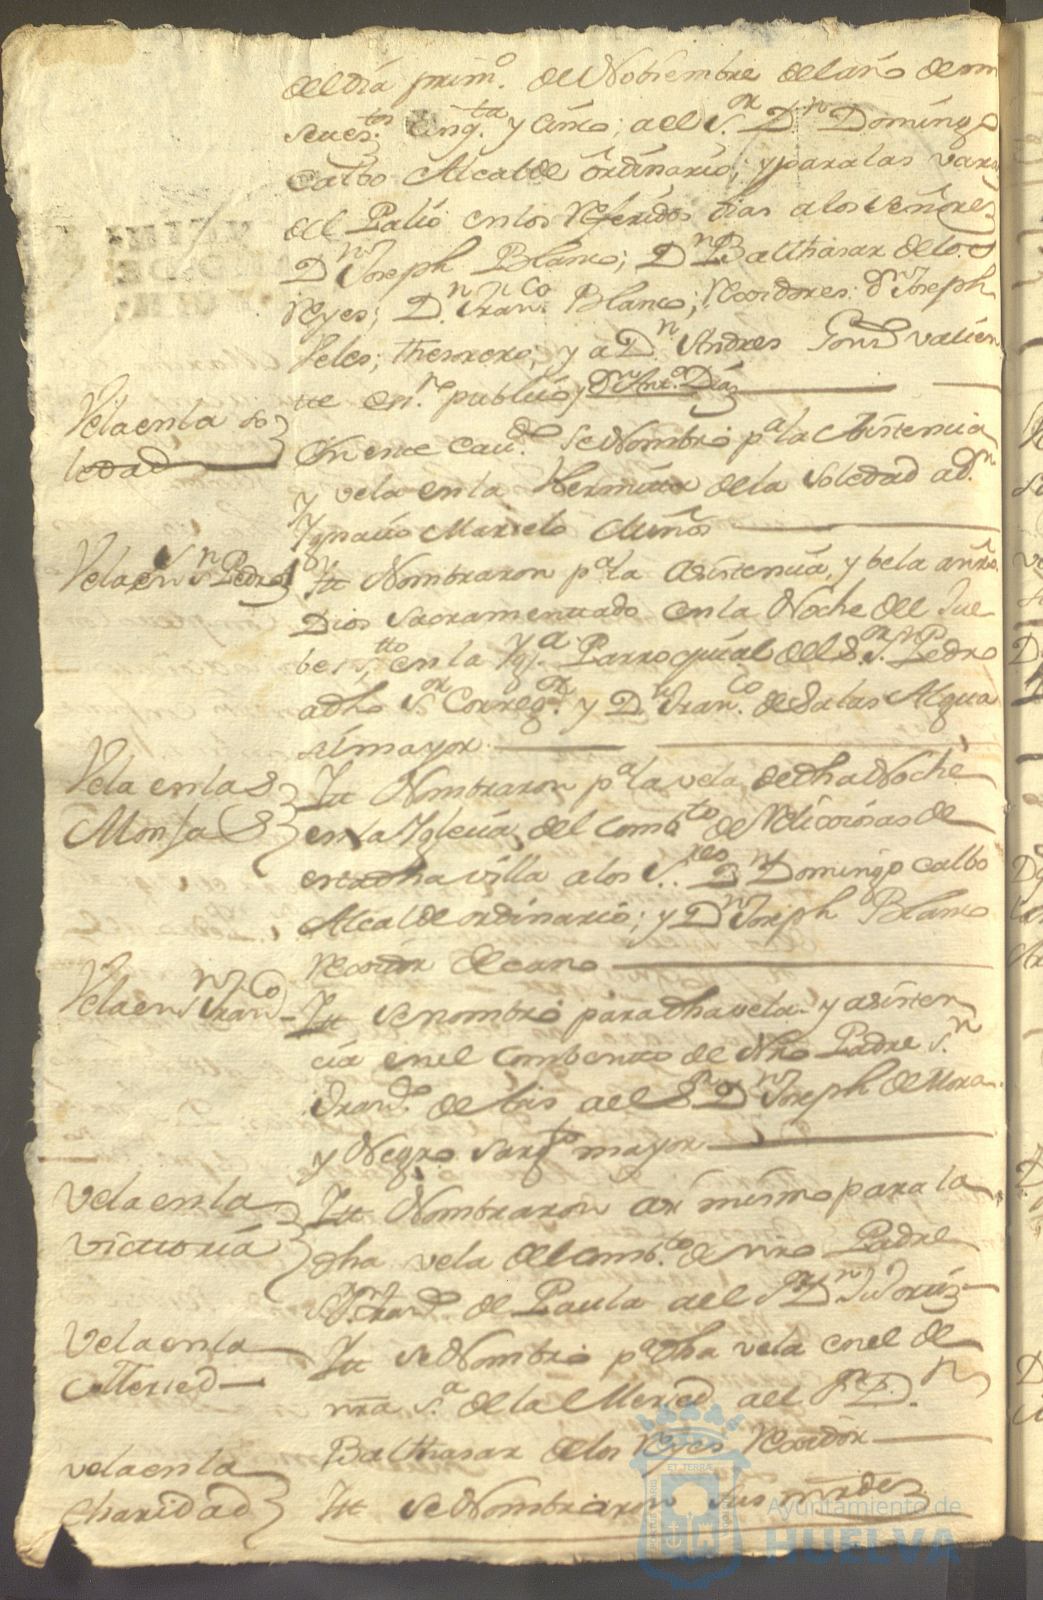 del dia prim.o de Nobiembre del año de mil
setes.tos Cinq.ta y Cinco; a el S.or D.n Domingo
Calbo Alcalde ordinario; y para las varas
del Palio en los Referidos dias a los señores
D.n Joseph Blanco; D.n Balthasar de los
Reyes; D.n Fran.co Blanco; Rexidores: D.n Joseph
Veles; thesorero; y a D.n Andres Gons. valien
te es.no publico, y D.n Ant.o Diaz
Vela en la So
ledad
En este cau.do Se Nombro p.a la Asistencia
y vela en la Hermita de la Soledad a D.n
Ygnacio Marselo Muños
Vela en S.n Pedro
Itt Nombraron p.a la asistencia, y bela a nro.
Dios Sacramentado en la Noche del Jue
bes s.tto en la Ygl.a Parroquial del S.or S.n Pedro
a dho S.or Correg.or y D.n Fran.co de Salas Algua
sil mayor
Vela en las
Monjas
Itt Nombraron p.a la vela de dha Noche
en la Yglecia del Comb.to de Relixiosas de
esta dha villa a los S.res D.n Domingo Calbo
Alcalde ordinario; y D.n Joseph Blanco
Rexidor decano
Vela en S.n Fran.co
Itt se nombro para dha vela y asisten
cia en el Combento de Nro Padre S.n
Fran.co de Asis a el S.r D.n Joseph de Mora
y Negro Sarg.to mayor
Vela en la
victoria
Itt Nombraron asi mismo para la
dha vela del Comb.to de nro Padre
S.n Fran.co de Paula a el S.r D.n
Vela en la
Merced
Itt se Nombro p.a dha vela en el de
nra S.a de la Merced a el S.r D.n
Balthasar de los Reyes Rexidor
vela en la
Charidad
Itt se Nombraron sus mrdes
ET TERRÆ
Ayuntamiento de
HUELVA